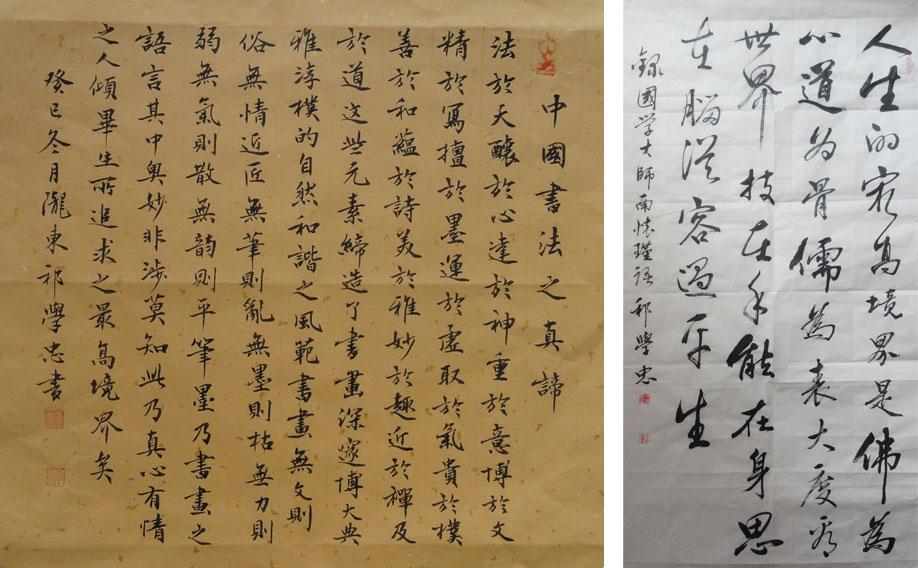 中國書法之真諦
法於天釀於心達於神重於意博於文
精於寫擅於墨運於虛取於氣貴於樸
善於和蘊於詩美於雅妙於趣近於禪及
於道这些元素締造了書畫深邃博大典
雅淳樸的自然和諧之風範書畫無文則
俗無情近匠無筆則亂無墨則枯無力則
弱無氣則散無韵則平筆墨乃書畫之
語言其中奥妙非涉莫知此乃真心有情
之人傾畢生所追求之最高境界矣
癸巳冬月隴東祁學忠書
人生的最高境界是佛為
心道为骨儒為表大度看
世界技在手能在身思
在腦從容過平生
錄國学大師南怀瑾語祁學忠